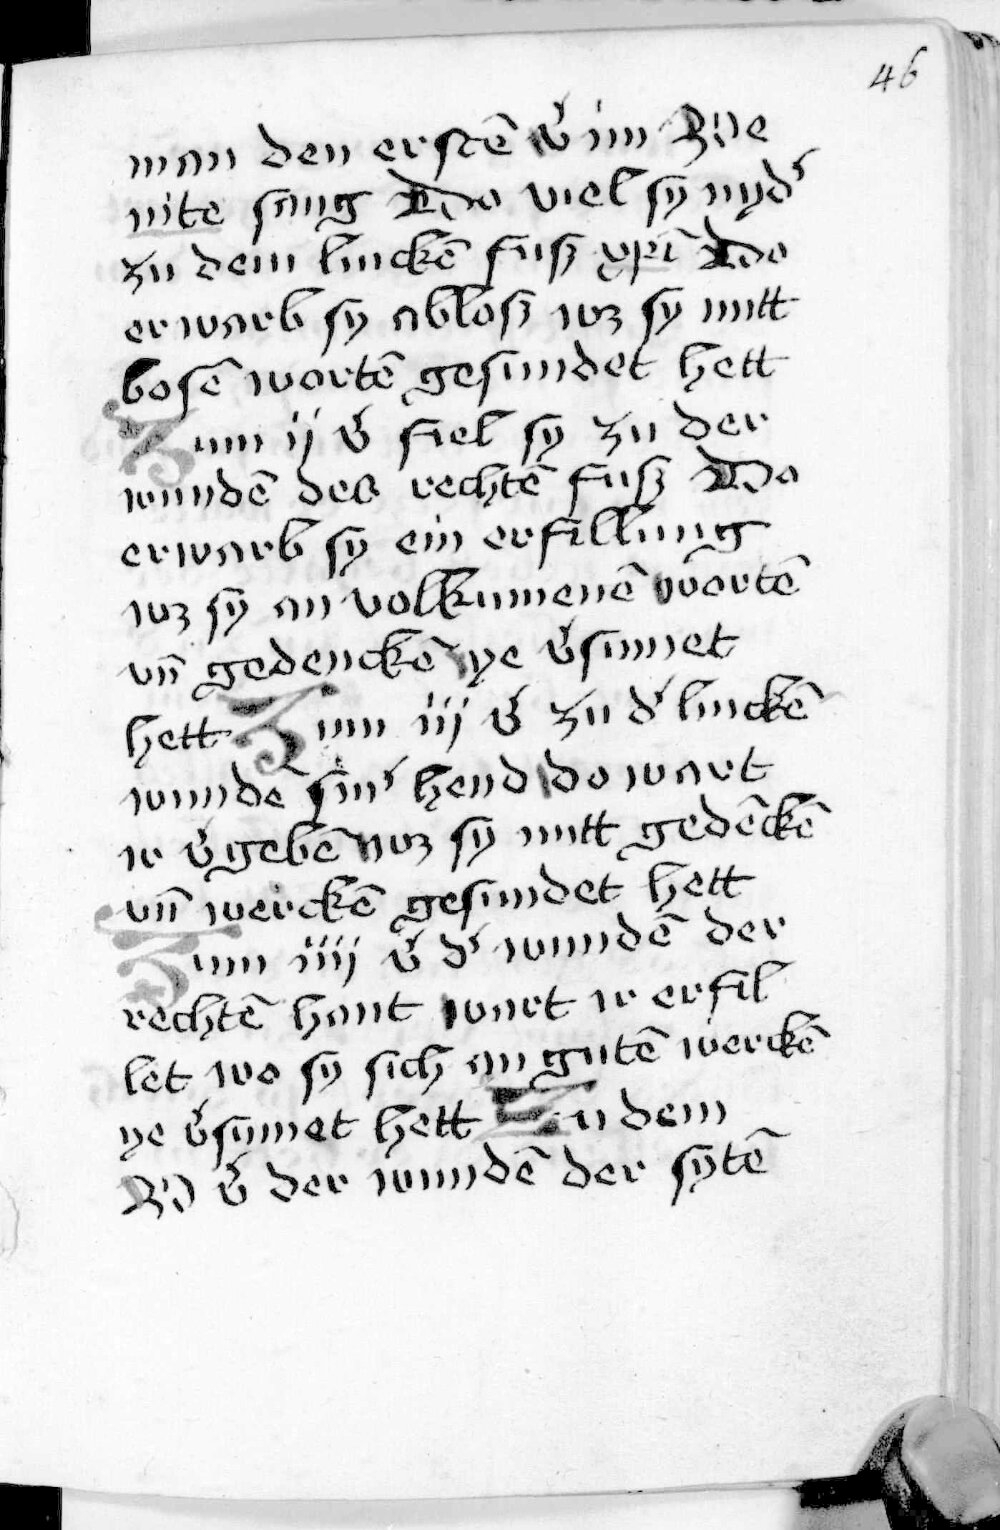 46
man den erstē v̓ im Ve
nite sang Do viel sy nyd᷑
zu dem linckē fusz xp̄i Do
erwarb sy ablosz wz sy mitt
bosē wortē gesundet hett
Zum ij v̓ fiel sy zu der
wundē des rechtē fusz Do
erwarb sy ein erfillung
wz sy an volkumenē wortē
vn̄ gedenckē ye v̓sumet
hett Zum iij v̓ zu d᷑ linckē
wundē sin᷑ hend do wart
ir v̓gebē wz sy mitt gedēckē
vn̄ werckē gesundet hett
Zum iiij v̓ d᷑ wundē der
rechtē hant wart ir erfil
let wo sy sich an gutē werckē
ye v̓sumet hett Zu dem
V v̓ der wundē der sytē